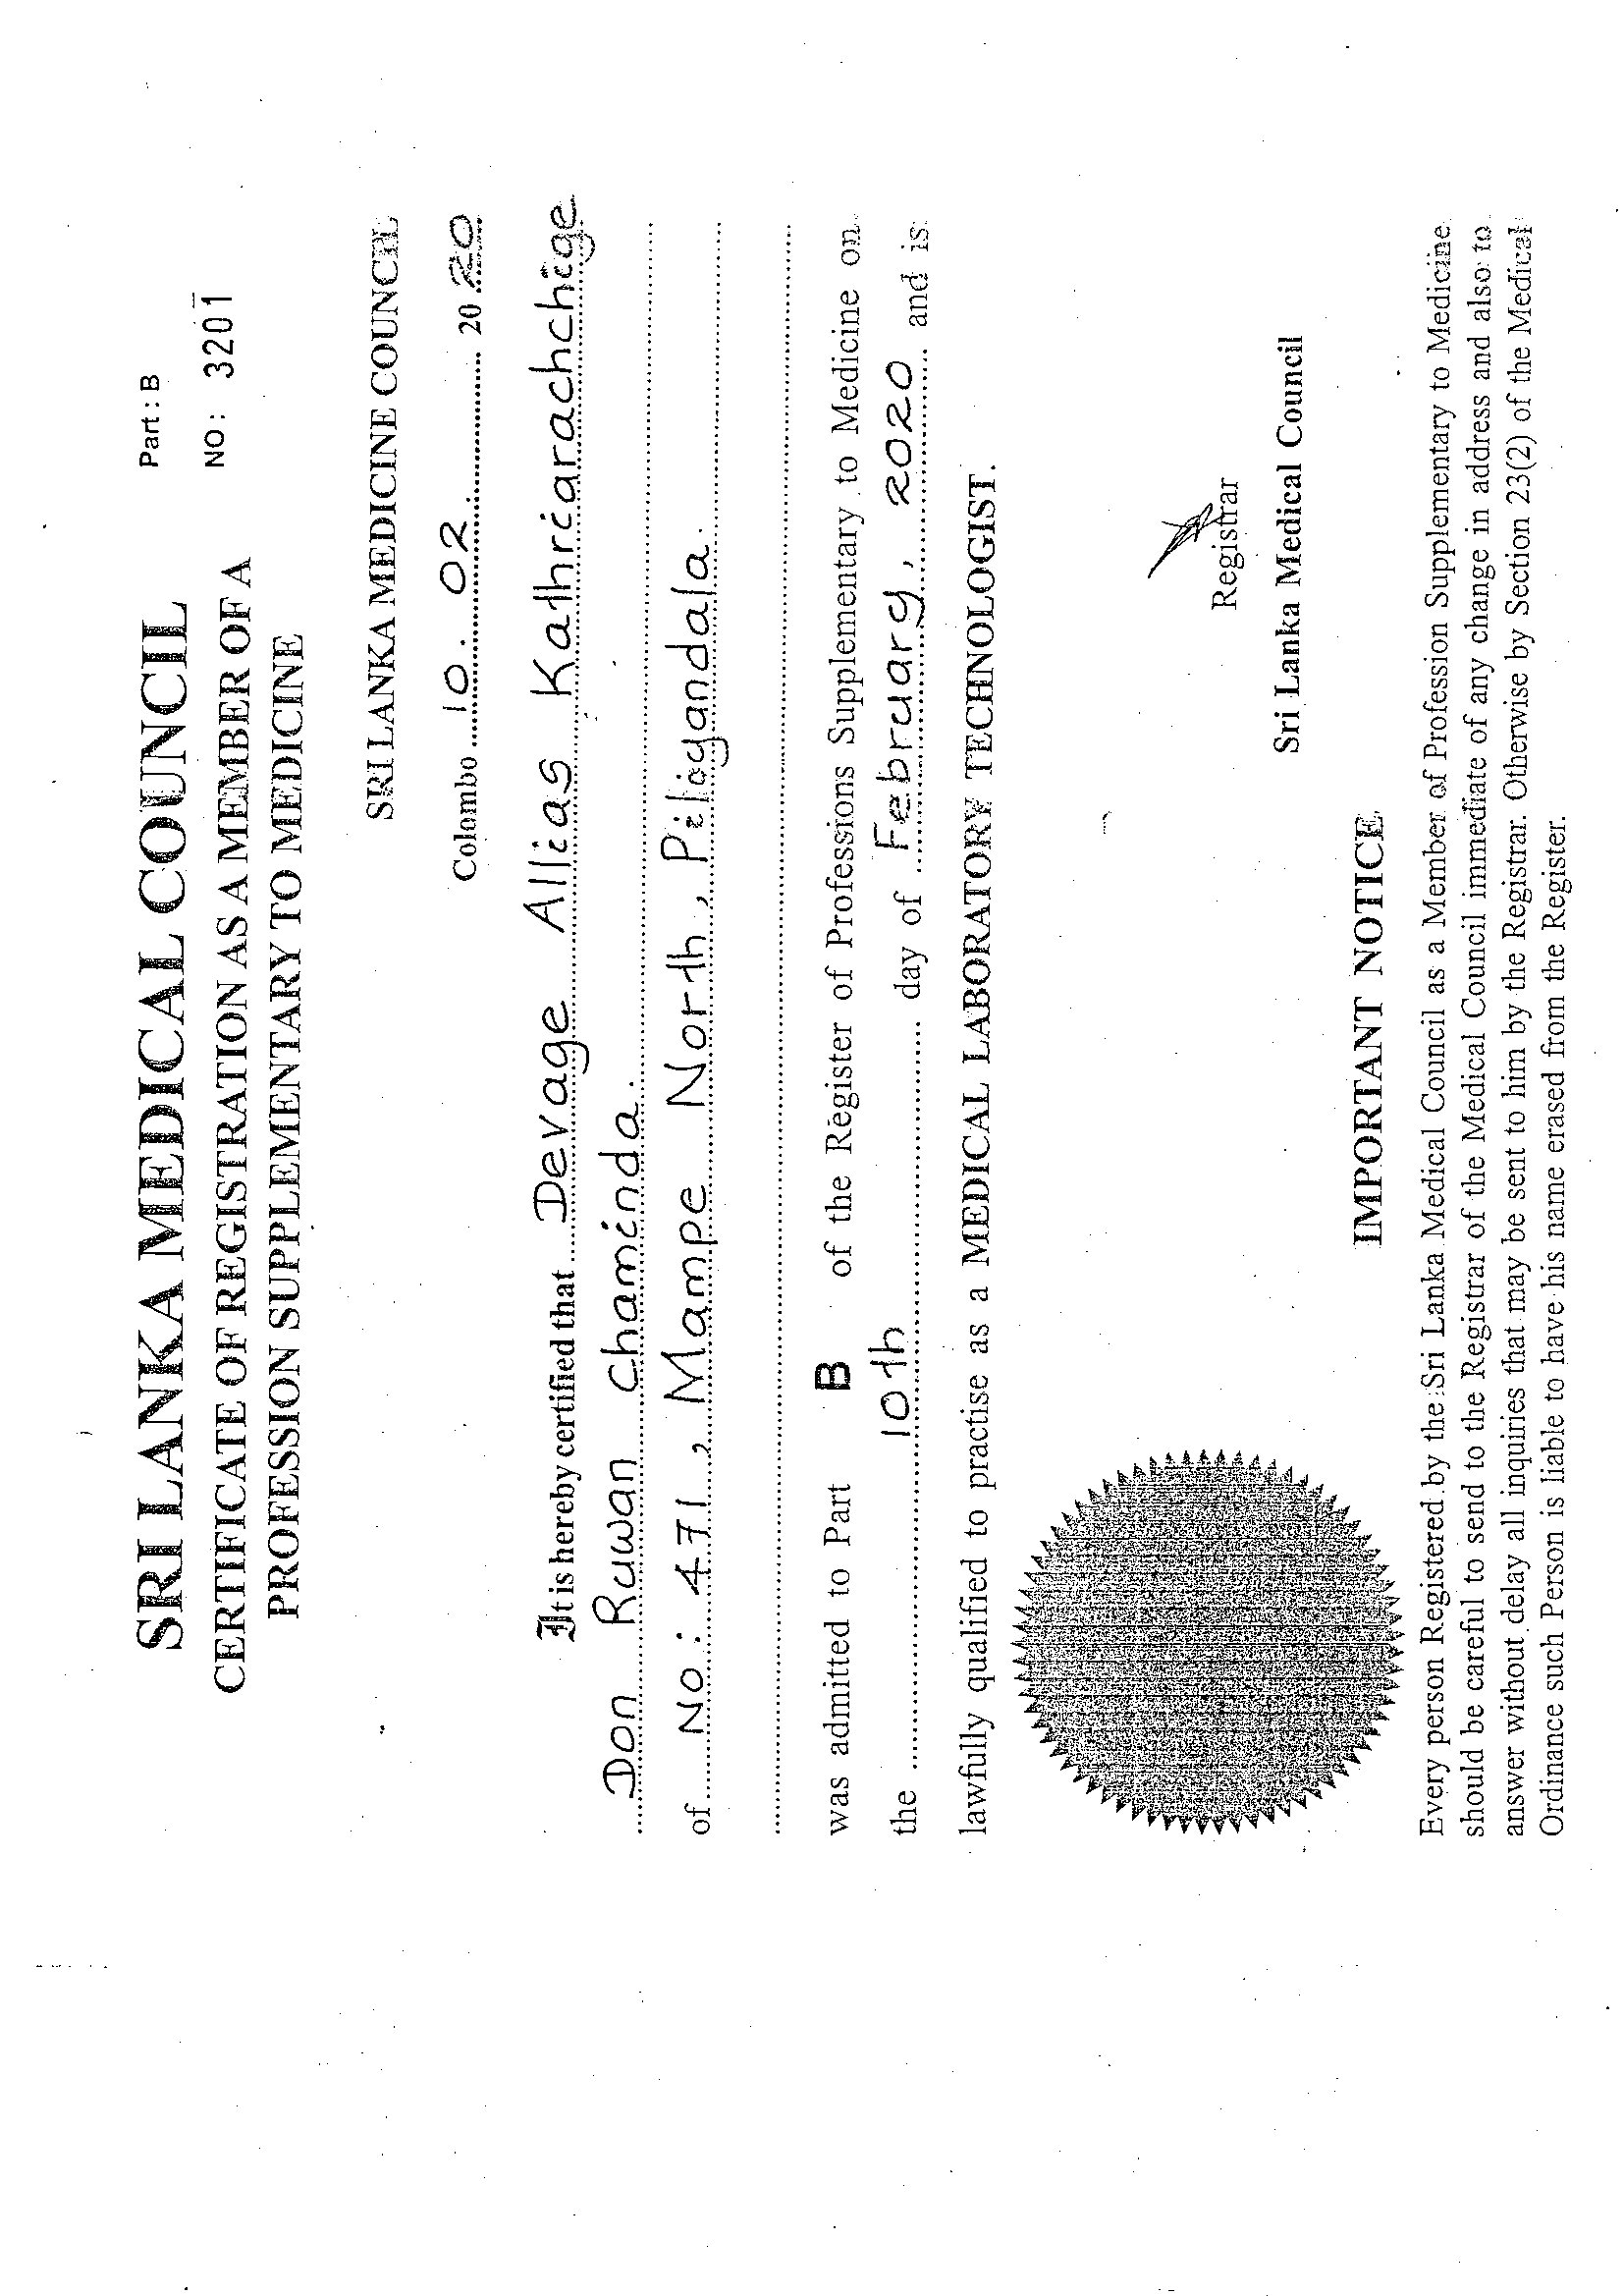 SRI LANKA MEDICAL COUNCIL
Part : B
CERTIFICATE OF REGISTRATION AS A MEMBER OF A
NO : 3201
PROFESSION SUPPLEMENTARY TO MEDICINE
SRI LANKA MEDICINE COUNCIL
Colombo 10.02 2020
It is hereby certified that Devage Allias Kathriarachchige
Don Ruwan Chaminda.
of No: 471, Mampe North, Piliyandala.
was admitted to Part B of the Register of Professions Supplementary to Medicine on
the 10th day of February, 2020 and is
lawfully qualified to practise as a MEDICAL LABORATORY TECHNOLOGIST.
Registrar
Sri Lanka Medical Council
IMPORTANT NOTICE
Every person Registered by the Sri Lanka Medical Council as a Member of Profession Supplementary to Medicine
should be careful to send to the Registrar of the Medical Council immediate of any change in address and also to
answer without delay all inquiries that may be sent to him by the Registrar. Otherwise by Section 23(2) of the Medical
Ordinance such Person is liable to have his name erased from the Register.